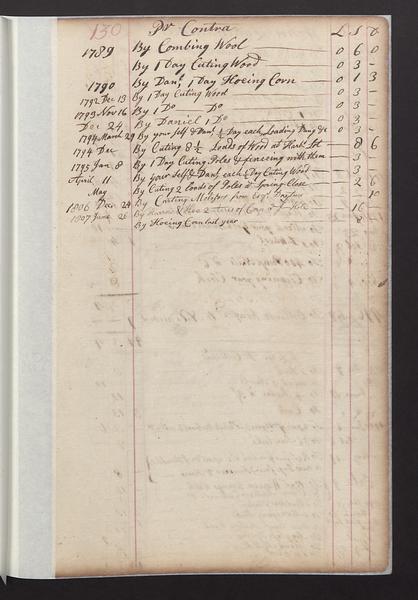 130 Pr Contra L S D
1789 By Combing Wool 0 6 0
By 1 Day Cuting Wood 0 3 -
1790 By Danl 1 Day Hoeing Corn 0 1 3
1792 Dec 13 By 1 Day Cuting Wood 0 3 -
1793 Nov 16 By 1 Do Do 0 3 -
Dec 24 By Daniel 1 Do 0 3 -
1794 March 29 By your self & Danl Day each Loading Dung &c 0 3 -
1794 Dec By Cuting 8½ Loads of Wood at Lot 8 6
1795 Jan 8 By 1 Day Cuting Poles & fenceing with them 3 -
April 11 By your Self & Danl each Day Cuting Wood 3 -
May By Cuting 2 Loads of Poles at Spring Close 2 6
1806 Dec 24 By Carting from 10
1807 June 26 By & Hoe 2 acres of 16
By Hoeing Corn last year 8